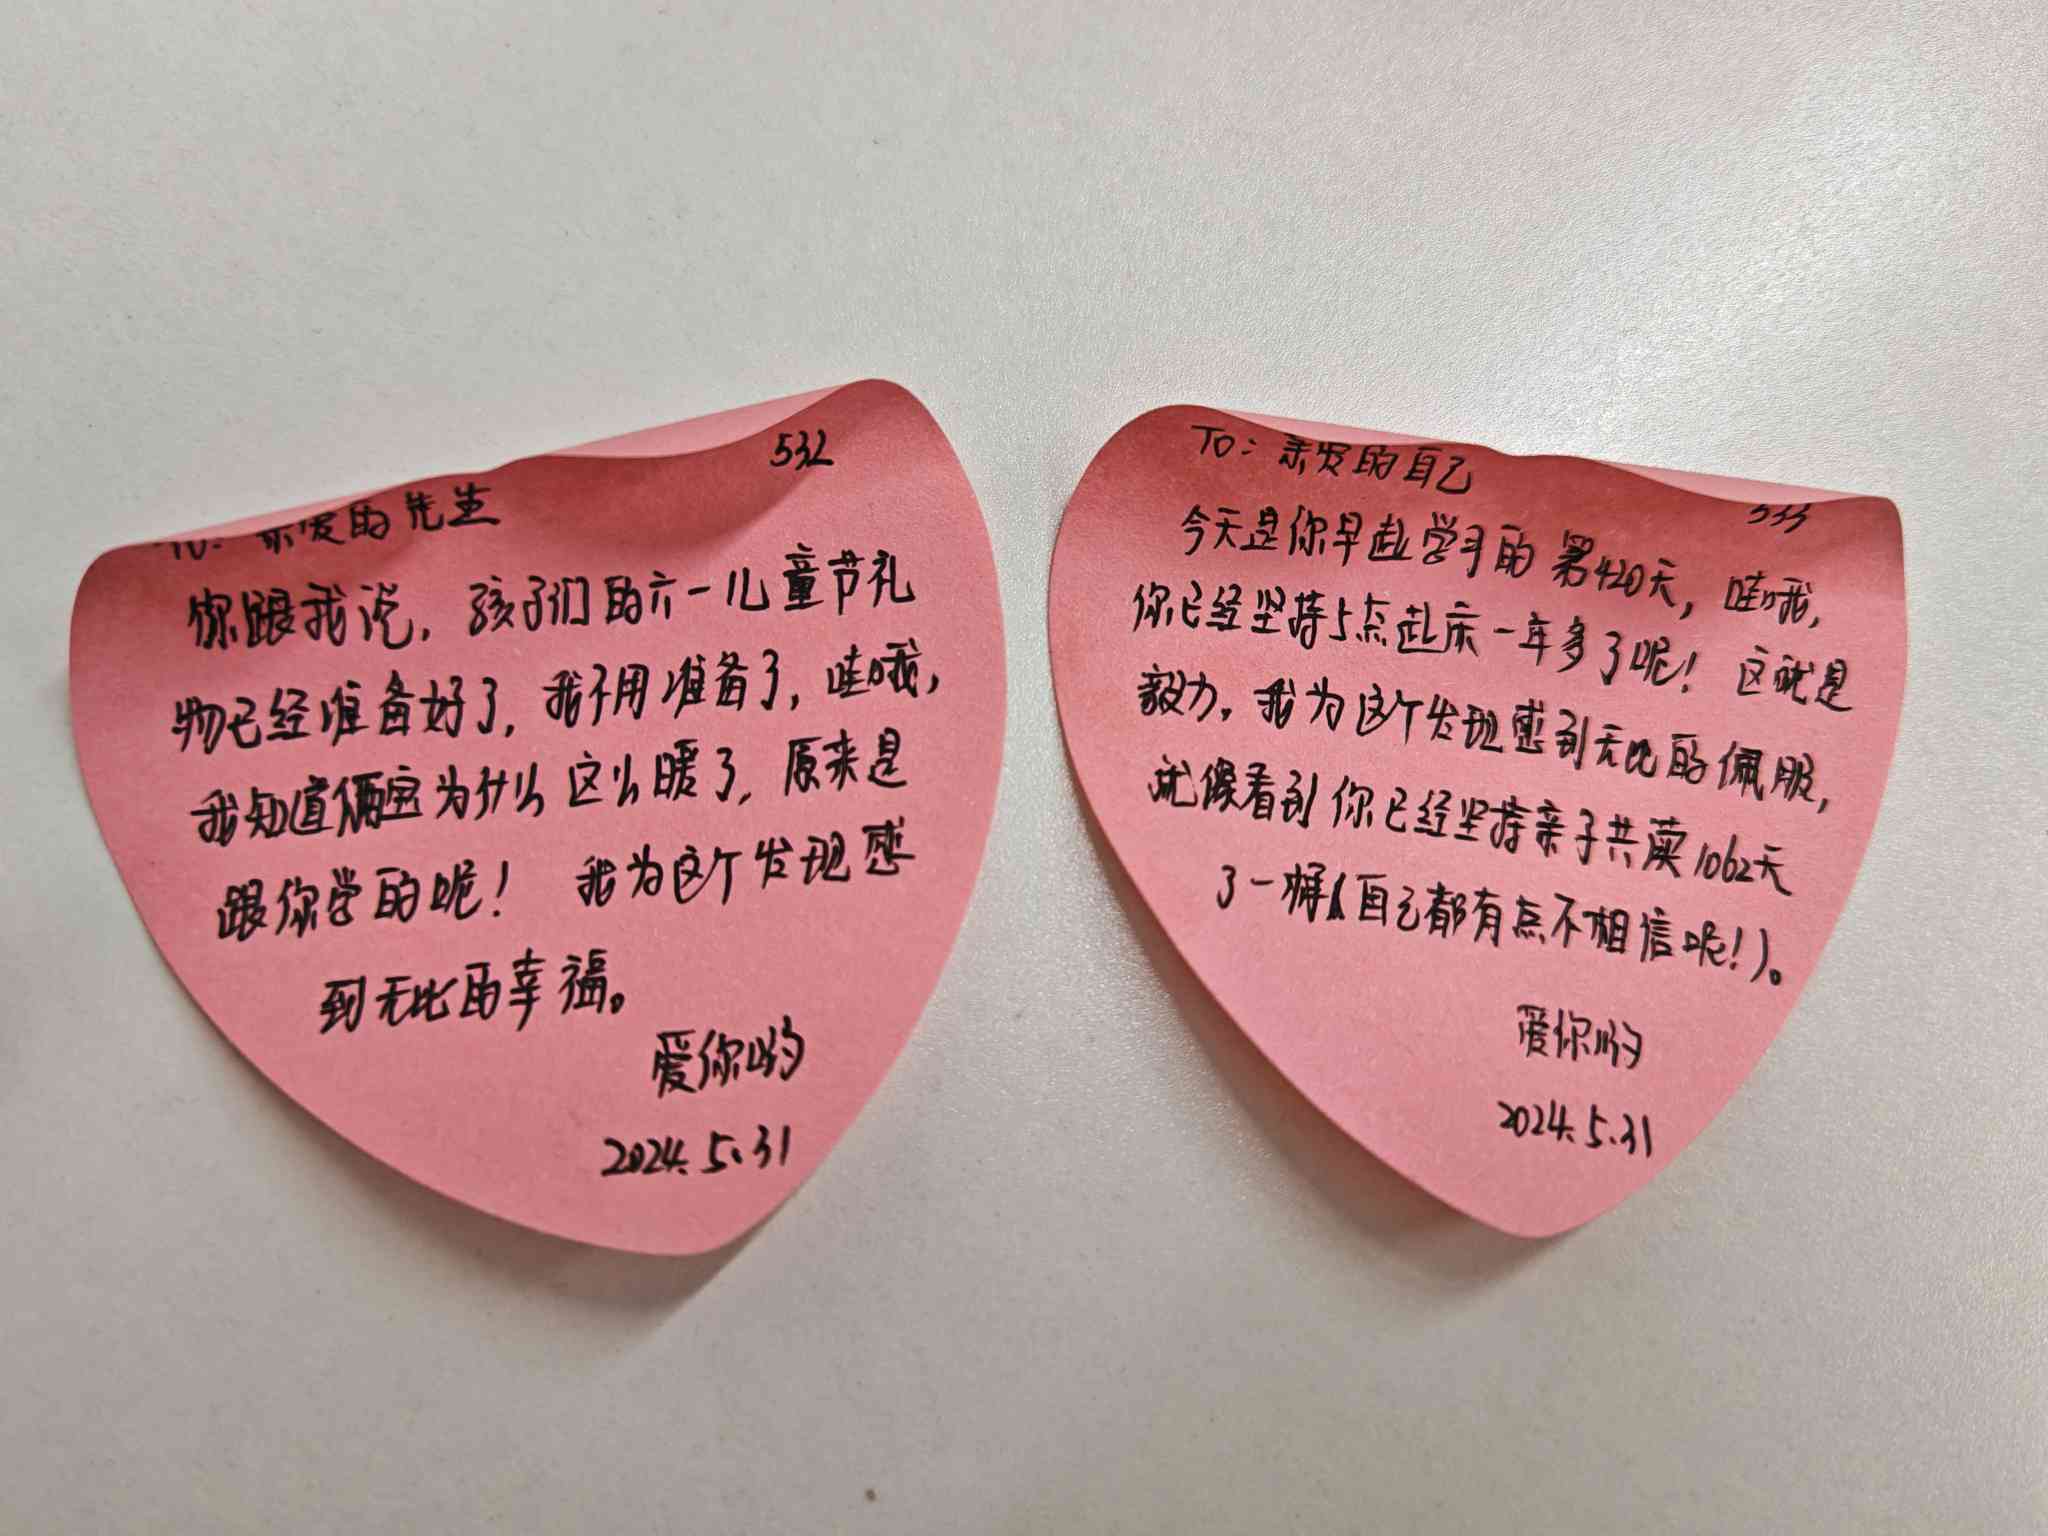 532
To: 亲爱的先生
你跟我说，孩子们的六一儿童节礼
物已经准备好了，我不用准备了，哇哦，
我知道俩宝为什么这么暖了，原来是
跟你学的呢！我为这个发现感
到无比的幸福。
爱你哟
2024.5.31
To: 亲爱的自己
533
今天是你早起学习的第420天，哇哦，
你已经坚持5点起床一年多了呢！这就是
毅力，我为这个发现感到无比的佩服，
就像看到你已经坚持亲子共读1062天
了一样（自己都有点不相信呢！）。
爱你哟
2024.5.31